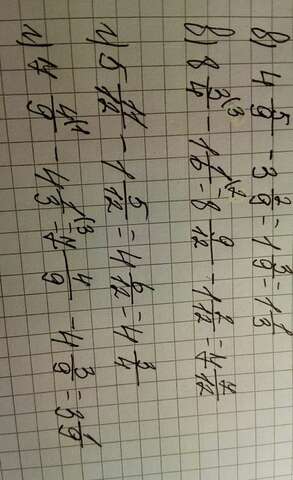 в) 4 5/9 - 3 2/9 = 1 3/9 = 1 1/3
в) 8 3/4 (3 - 1 1/6 (2 = 8 9/12 - 1 2/12 = 7 7/12
г) 5 11/12 - 1 5/12 = 4 6/12 = 4 3/4
г) 7 4/9 (1 - 4 1/3 (3 = 7 4/9 - 4 3/9 = 3 1/9